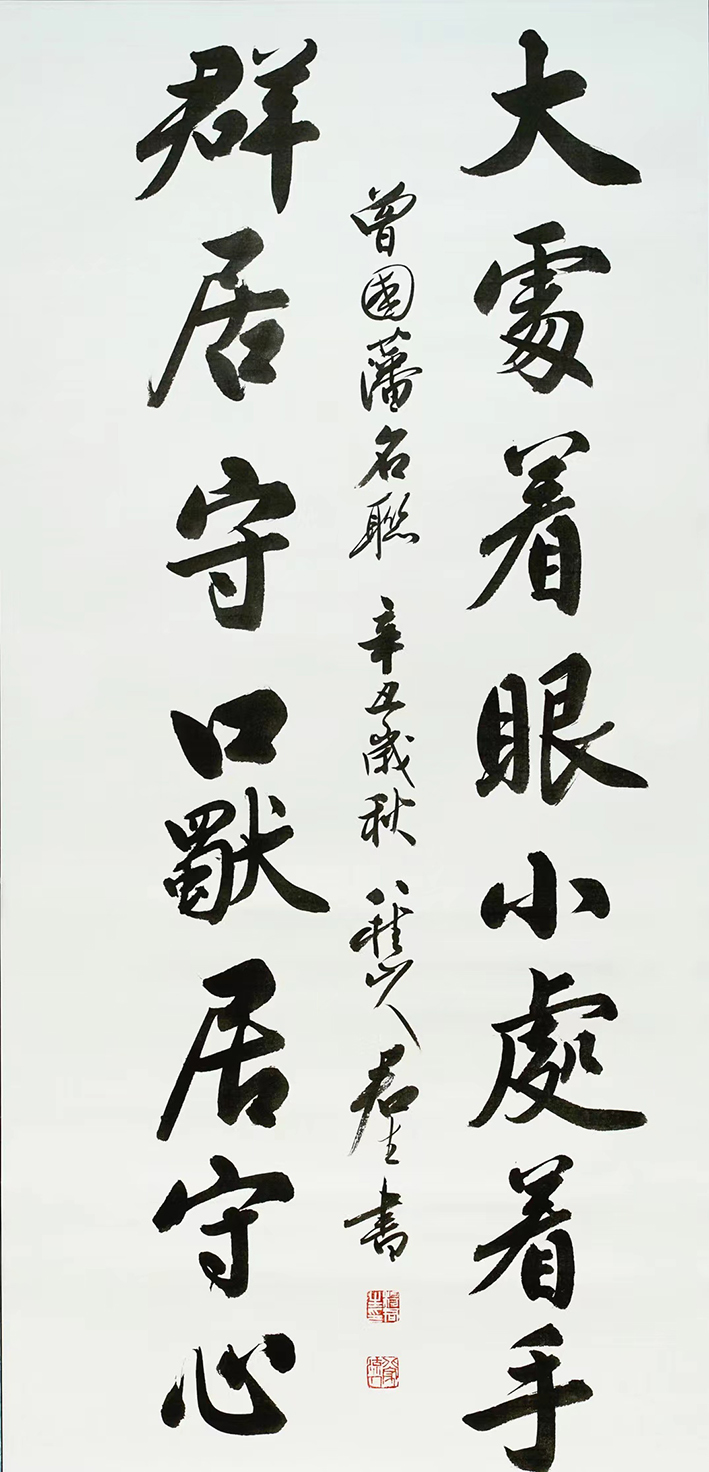 大處着眼小處着手
群居守口獨居守心
曾國藩名聯 辛丑歲秋 山人 書